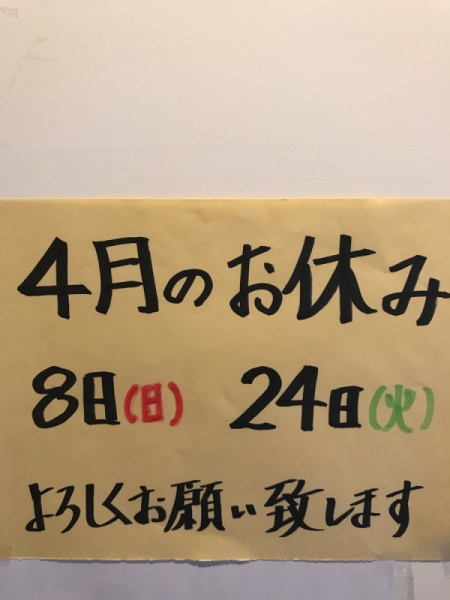 4月のお休み
8日(日) 24日(火)
よろしくお願い致します